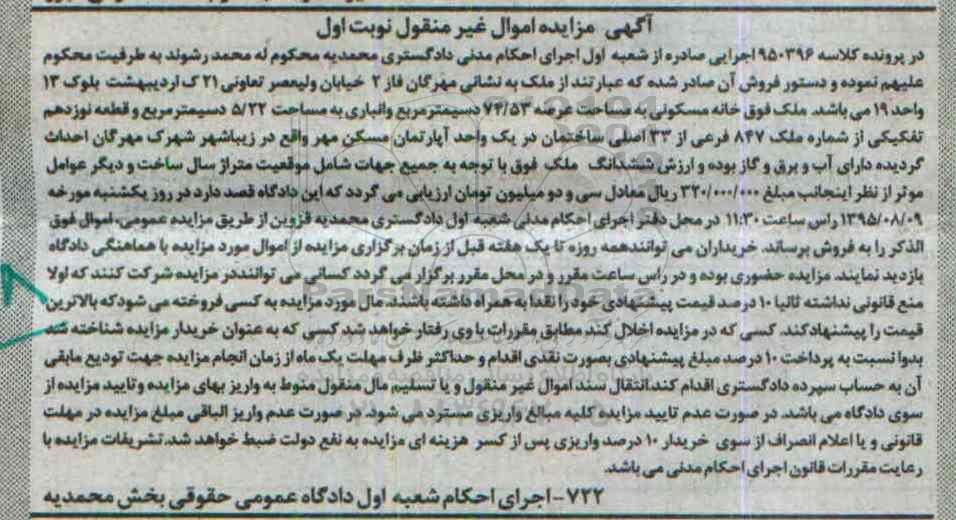 آگهی مزایده اموال غیر منقول نوبت اول
در پرونده کلاسه ۹۵۰۳۹۶ اجرایی صادره از شعبه اول اجرای احکام مدنی دادگستری محمدیه محکوم له محمد رشوند به طرفیت محکوم
علیهم نموده و دستور فروش آن صادر شده که عبارتند از ملک به نشانی مهرگان فاز ۲ خیابان ولیعصر تعاونی ۲۱ ک اردیبهشت بلوک ۱۳
واحد ۱۹ می باشد. ملک فوق خانه مسکونی به مساحت عرصه ۷۴/۵۳ دسیمترمربع وانباری به مساحت ۵/۲۲ دسیمترمربع و قطعه نوزدهم
تفکیکی از شماره ملک ۸۴۷ فرعی از ۳۳ اصلی ساختمان در یک واحد آپارتمان مسکن مهر واقع در زیباشهر شهرک مهرگان احداث
گردیده دارای آب و برق و گاز بوده و ارزش ششدانگ ملک فوق با توجه به جمیع جهات شامل موقعیت متراژ سال ساخت و دیگر عوامل
موثر از نظر اینجانب مبلغ ۳۲۰/۰۰۰/۰۰۰ ریال معادل سی و دو میلیون تومان ارزیابی می گردد که این دادگاه قصد دارد در روز یکشنبه مورخه
۱۳۹۵/۰۸/۰۹ راس ساعت ۱۱:۳۰ در محل دفتر اجرای احکام مدنی شعبه اول دادگستری محمدیه قزوین از طریق مزایده عمومی، اموال فوق
الذکر را به فروش برساند. خریداران می توانندهمه روزه تا یک هفته قبل از زمان برگزاری مزایده از اموال مورد مزایده با هماهنگی دادگاه
بازدید نمایند. مزایده حضوری بوده و در راس ساعت مقرر و در محل مقرر برگزار می گردد کسانی می تواننددر مزایده شرکت کنند که اولا
منع قانونی نداشته ثانیا ۱۰ درصد قیمت پیشنهادی خود را نقدا به همراه داشته باشند. مال مورد مزایده به کسی فروخته می شود که بالاترین
قیمت را پیشنهاد کند. کسی که در مزایده اخلال کند مطابق مقررات با وی رفتار خواهد شد کسی که به عنوان خریدار مزایده شناخته شد
بدوا نسبت به پرداخت ۱۰ درصد مبلغ پیشنهادی بصورت نقدی اقدام و حداکثر ظرف مهلت یک ماه از زمان انجام مزایده جهت تودیع مابقی
آن به حساب سپرده دادگستری اقدام کند. انتقال سند اموال غیر منقول و یا تسلیم مال منقول منوط به واریز بهای مزایده وتایید مزایده از
سوی دادگاه می باشد. در صورت عدم تایید مزایده کلیه مبالغ واریزی مسترد می شود. در صورت عدم واریز الباقی مبلغ مزایده در مهلت
قانونی و یا اعلام انصراف از سوی خریدار ۱۰ درصد واریزی پس از کسر هزینه ای مزایده به نفع دولت ضبط خواهد شد. تشریفات مزایده با
رعایت مقررات قانون اجرای احکام مدنی می باشد.
۷۲۲-اجرای احکام شعبه اول دادگاه عمومی حقوقی بخش محمدیه
ParsNamadData